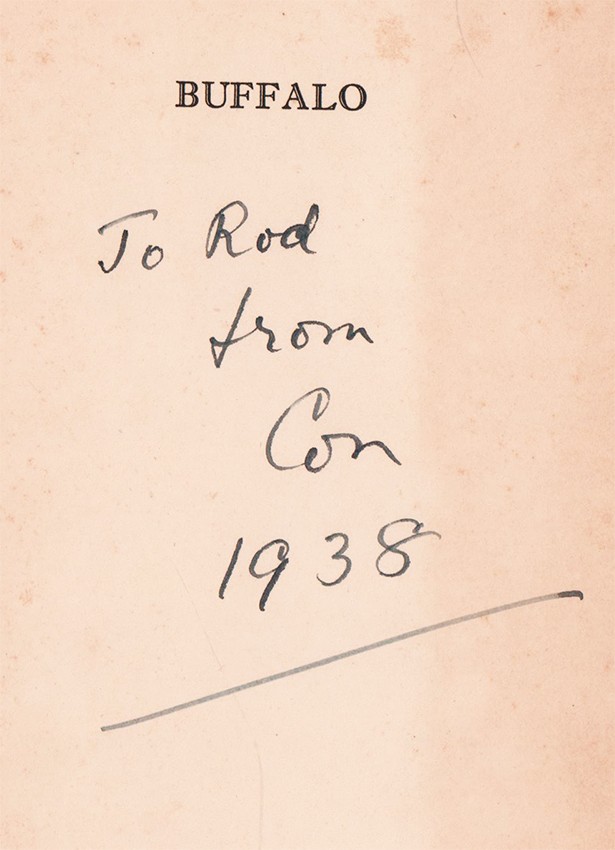 BUFFALO
To Rod
from
Con
1938